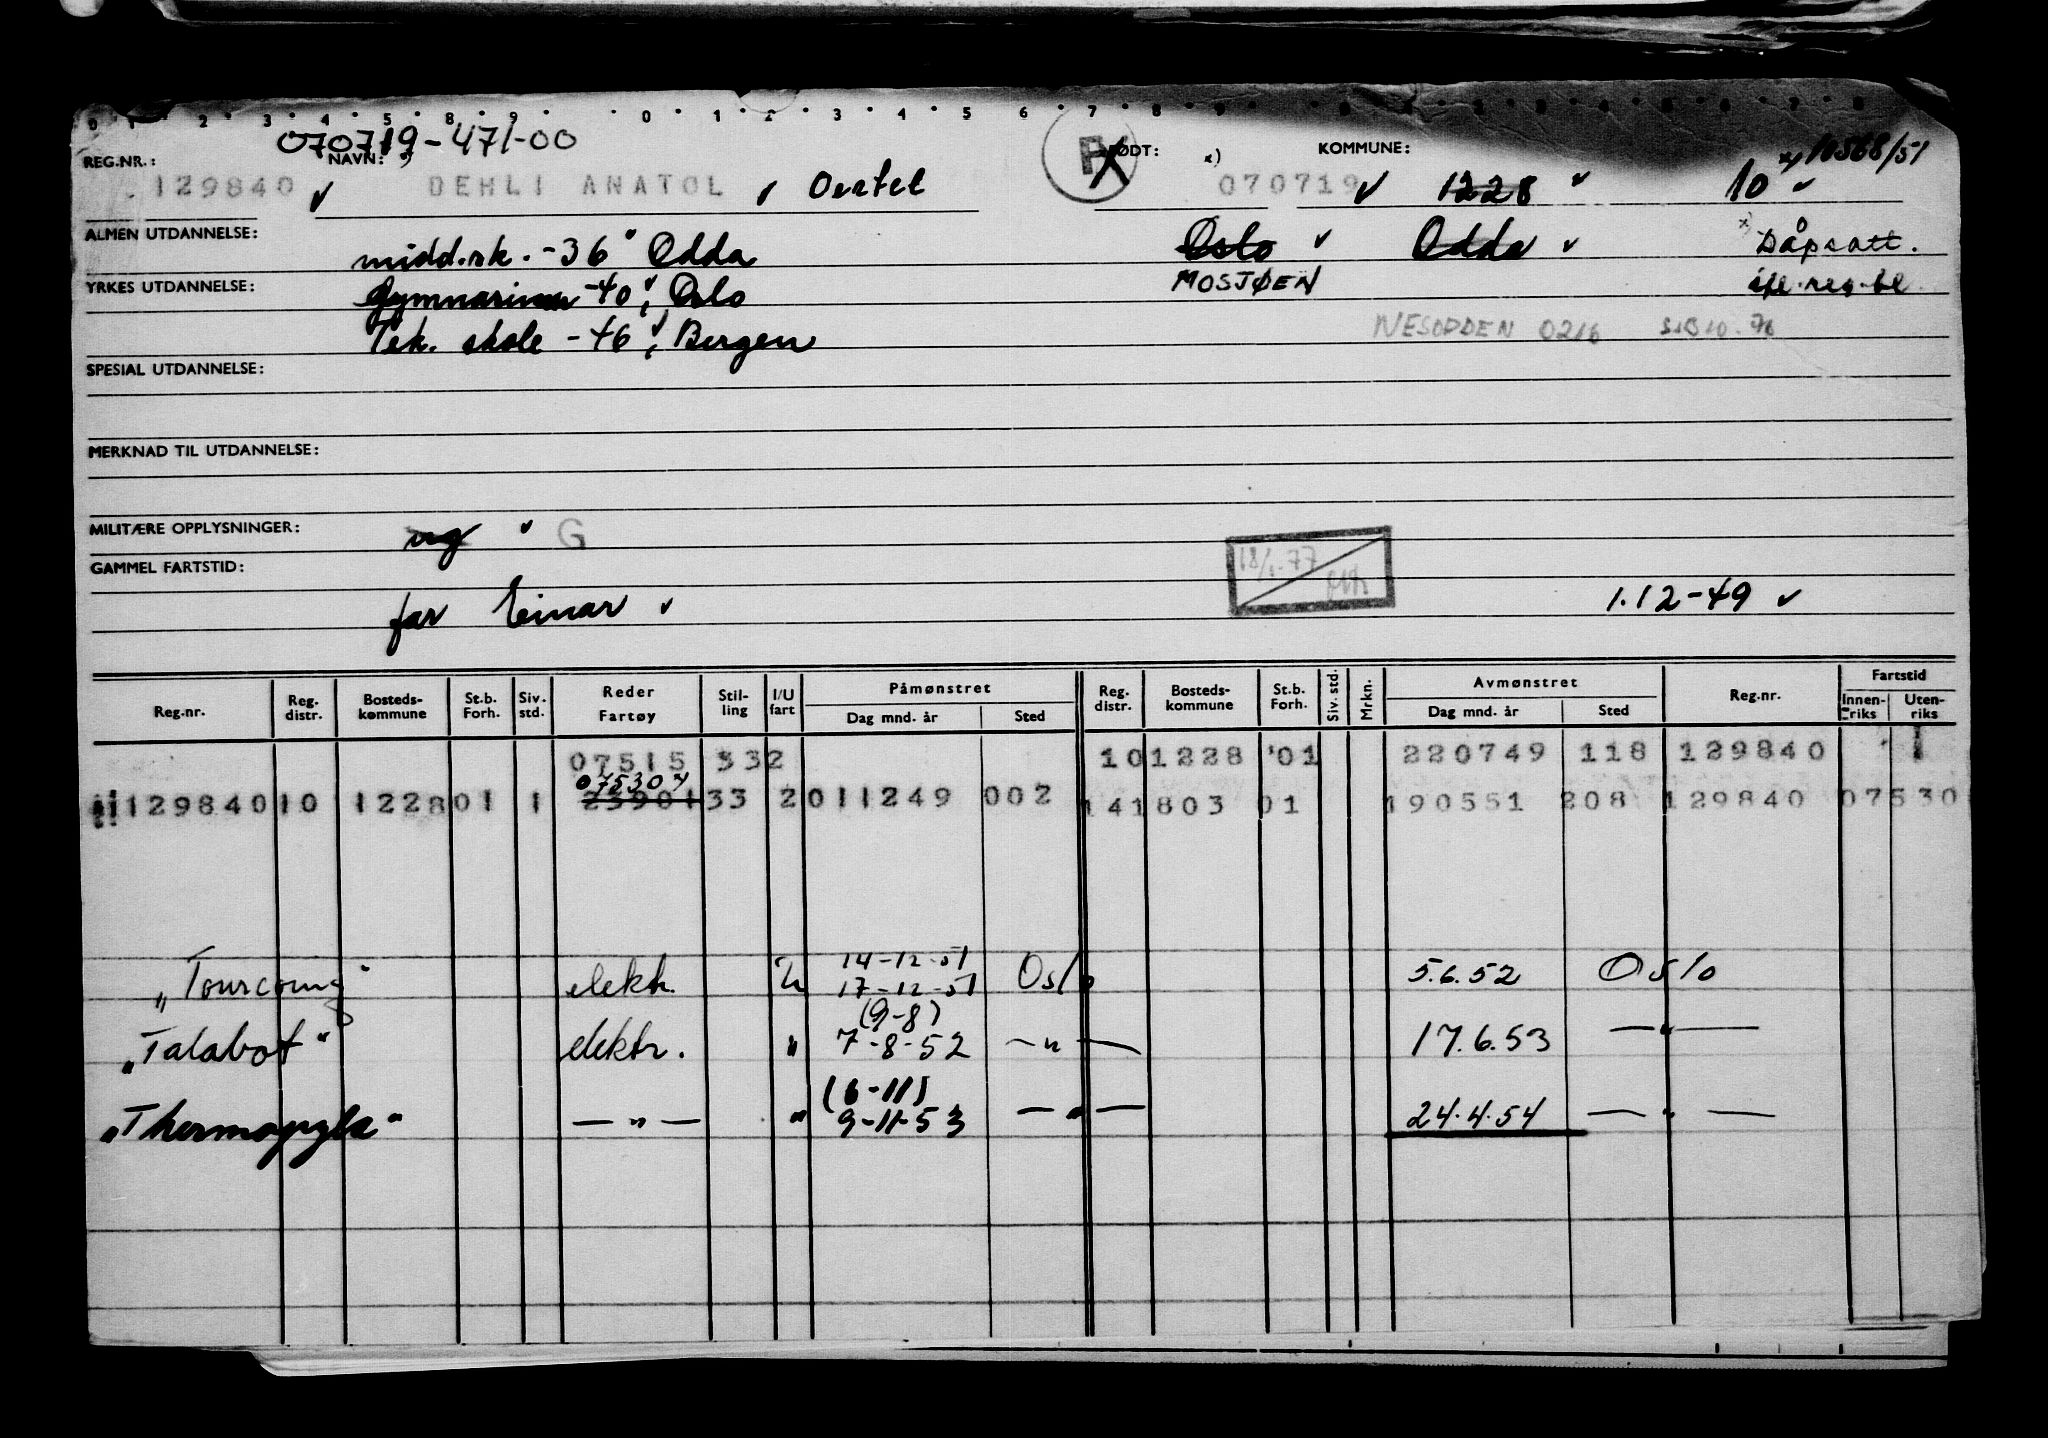 0 1 2 3 4 5 8 9 0 1 2 3 4 5 6 7 8 9
070719-471-00
REG.NR.: NAVN: FØDT: x) KOMMUNE: x) 10568/51
129840 DEHLI ANATOL, Oertel 070719 1228 10
ALMEN UTDANNELSE: midd.sk. -36 Odda Oslo Odda x) Dåpsatt.
YRKES UTDANNELSE: Gymnasium -40, Oslo MOSJØEN
Tek. skole -46, Bergen NESODDEN 0216
SPESIAL UTDANNELSE:
MERKNAD TIL UTDANNELSE:
MILITÆRE OPPLYSNINGER: ug G
GAMMEL FARTSTID: 18/1-77
far Einar 1.12-49
Reg.nr. Reg. distr. Bosteds- kommune St.b. Forh. Siv. std. Reder Fartøy Stil- ling I/U fart Påmønstret Dag mnd. år Sted Reg. distr. Bosteds- kommune St.b. Forh. Siv. std. Mrkn. Avmønstret Dag mnd. år Sted Reg.nr. Fartstid Innen- riks Uten- riks
07515 332 10 1228 01 220749 118 129840 1
075307
129840 10 1228 01 1 23901 33 2 011249 002 14 1803 01 190551 208 129840 07530
14-12-51
"Tourcoing" elektr. U 17-12-51 Oslo 5.6.52 Oslo
(9-8)
"Talabot" elektr. " 7-8-52 -"- 17.6.53 -"-
(6-11)
"Thermopylæ" -"- " 9-11-53 -"- 24.4.54 -"-